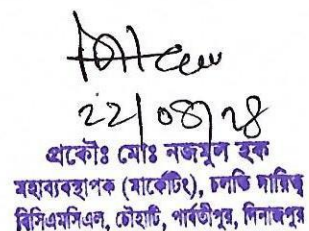 22/08/২৪
প্রকৌঃ মোঃ নজমুল হক
মহাব্যবস্থাপক (মার্কেটিং), চলতি দায়িত্ব
বিসিএমসিএল, চৌহাটি, পার্বতীপুর, দিনাজপুর